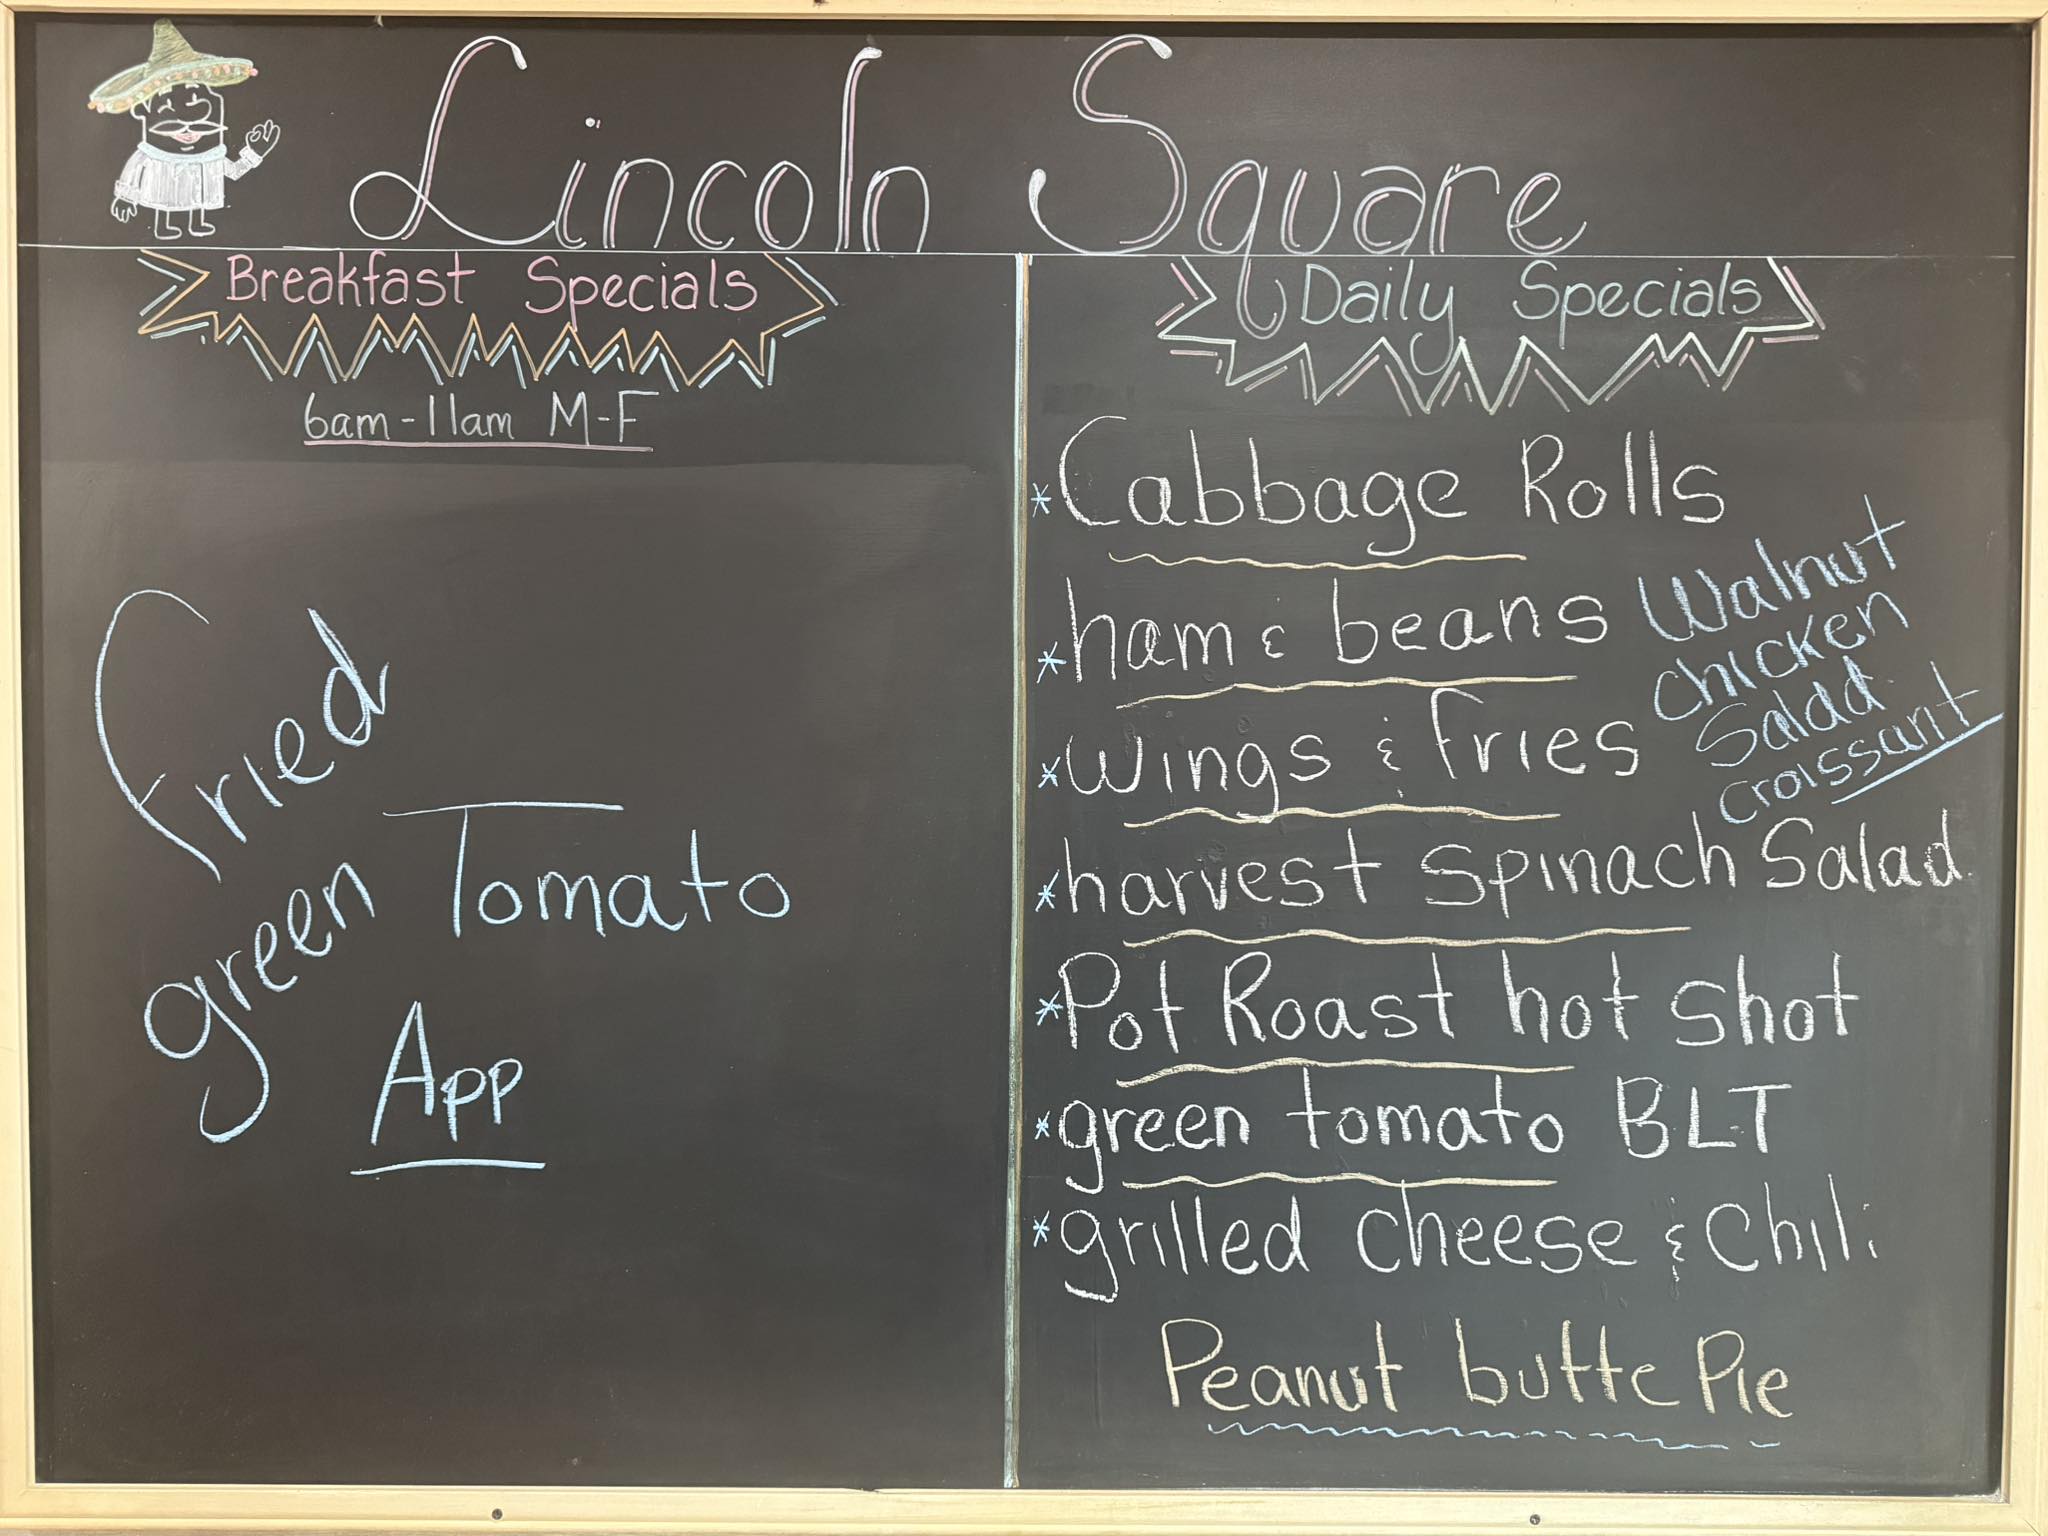 Lincoln Square
Breakfast Specials
6am-11am M-F
Fried
green Tomato
App
Daily Specials
*Cabbage Rolls
*ham & beans
*wings & fries
*harvest spinach Salad
*Pot Roast hot shot
*green tomato BLT
*grilled cheese & Chili
Peanut butte Pie
Walnut
chicken
Salad
croissant